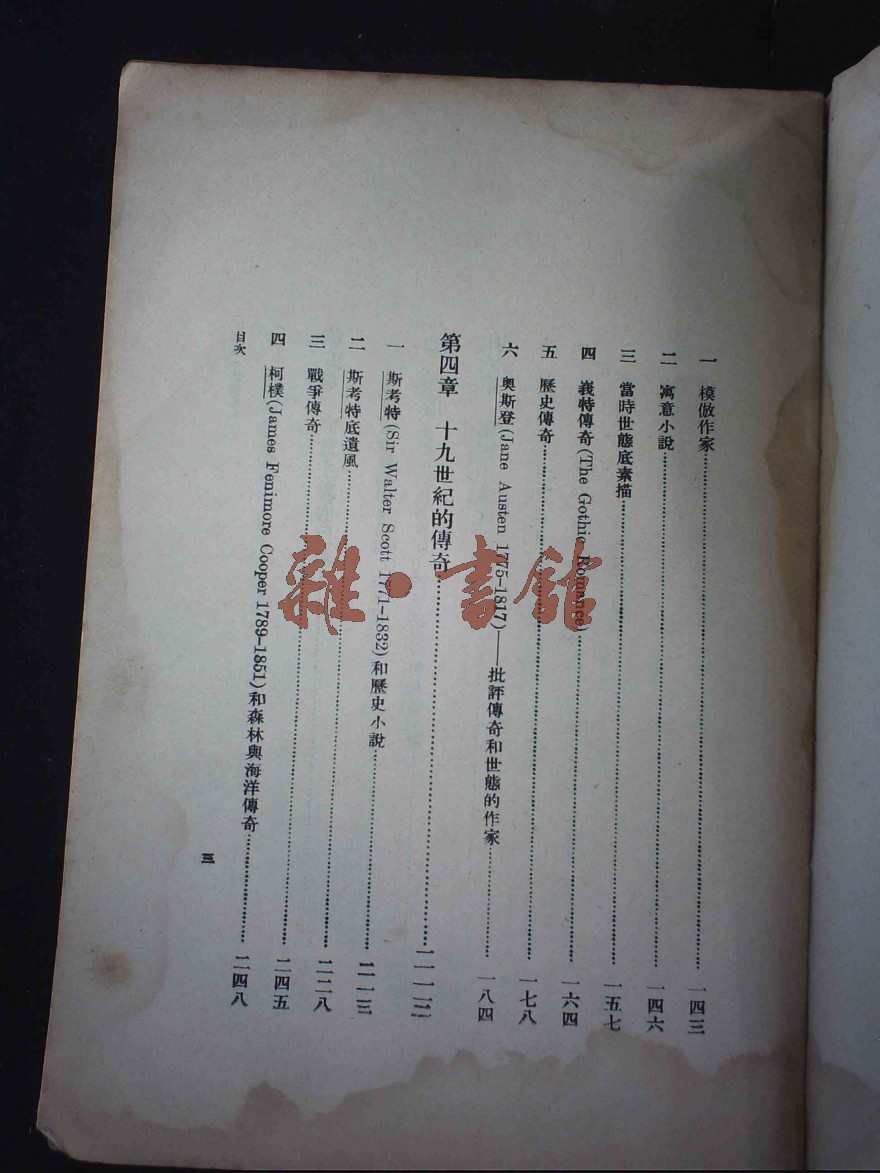 一 模倣作家……一四三
二 寓意小說……一四六
三 當時世態底素描……一五七
四 峩特傳奇(The Gothic Romance)……一六四
五 歷史傳奇……一七八
六 奧斯登(Jane Austen 1775–1817)——批評傳奇和世態的作家……一八四
第四章 十九世紀的傳奇……二一二
一 斯考特(Sir Walter Scott 1771–1832)和歷史小說……二一三
二 斯考特底遺風……二二八
三 戰爭傳奇……二四五
四 柯樸(James Fenimore Cooper 1789–1851)和森林與海洋傳奇……二四八
目次
三
雜·書館